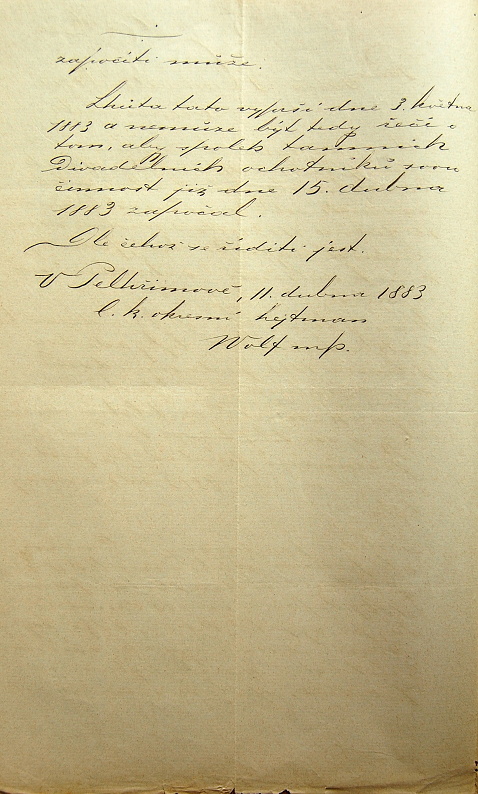 započíti může.
Lhůta tato vyprší dne 3. května
1883 a nemůže být tedy řeči o
tom, aby spolek tamních
Divadelních ochotníků svou
činnost již dne 15. dubna
1883 započal.
Dle čehož se říditi jest.
V Pelhřimově, 11. dubna 1883
C. k. okresní hejtman
Wolf mp.